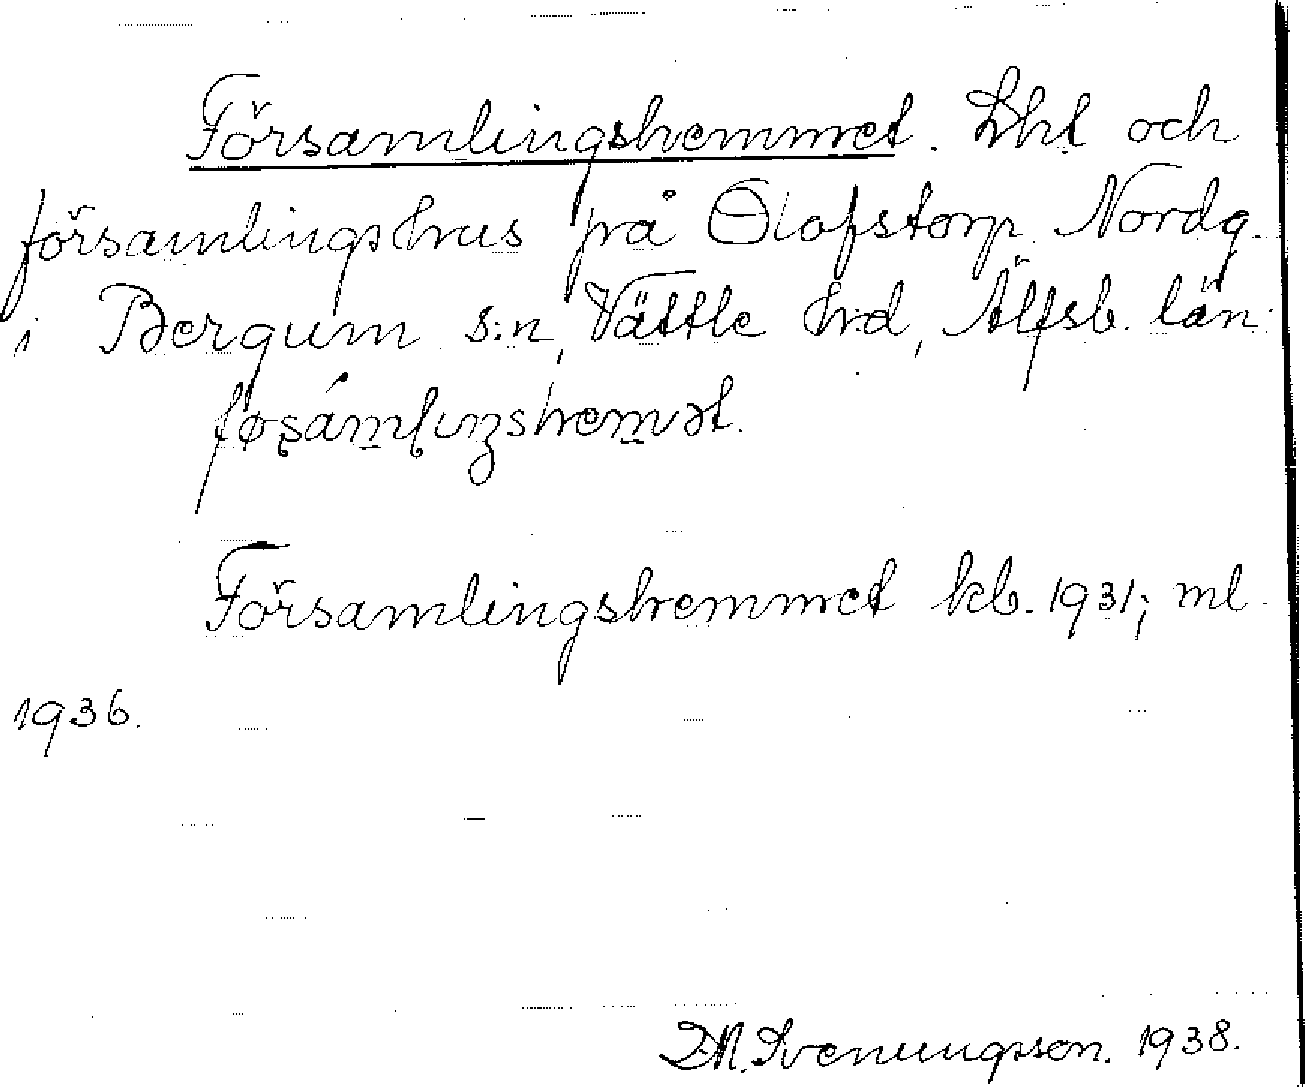 Församlingshemmet. Lht och
församlingshus på Olofstorp Nordg.
i Bergum s:n, Vättle hd, Älfsb. län:
Församlingshemmet kb. 1931; ml
1936.
Svenungsson. 1938.